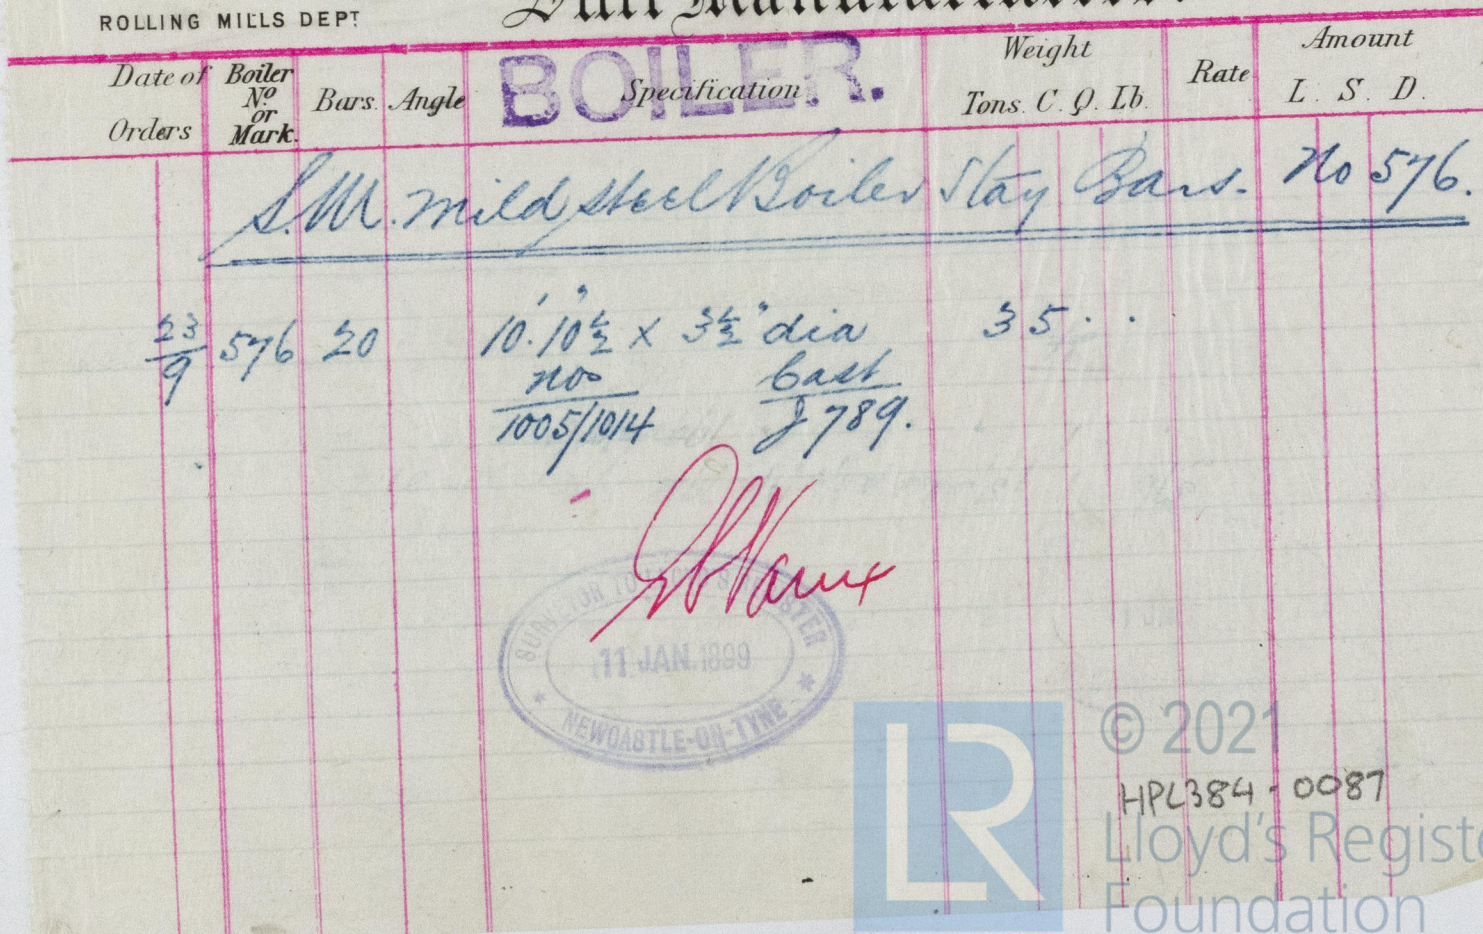 ROLLING MILLS DEPT
BOILER.
Date of Orders Boiler No or Mark. Bars. Angle Specification Weight Tons. C. Q. Lb. Rate Amount L. S. D.
S.M. Mild Steel Boiler Stay Bars. No 576.
23/9 576 20 10'.10½" x 3½" dia 35 . .
nos Cast
1005/1014 J 789.
SURVEYOR TO LLOYD'S REGISTER
11 JAN. 1899
NEWCASTLE-ON-TYNE
LR
© 2021
HPL384-0087
Lloyd's Registe
Foundation